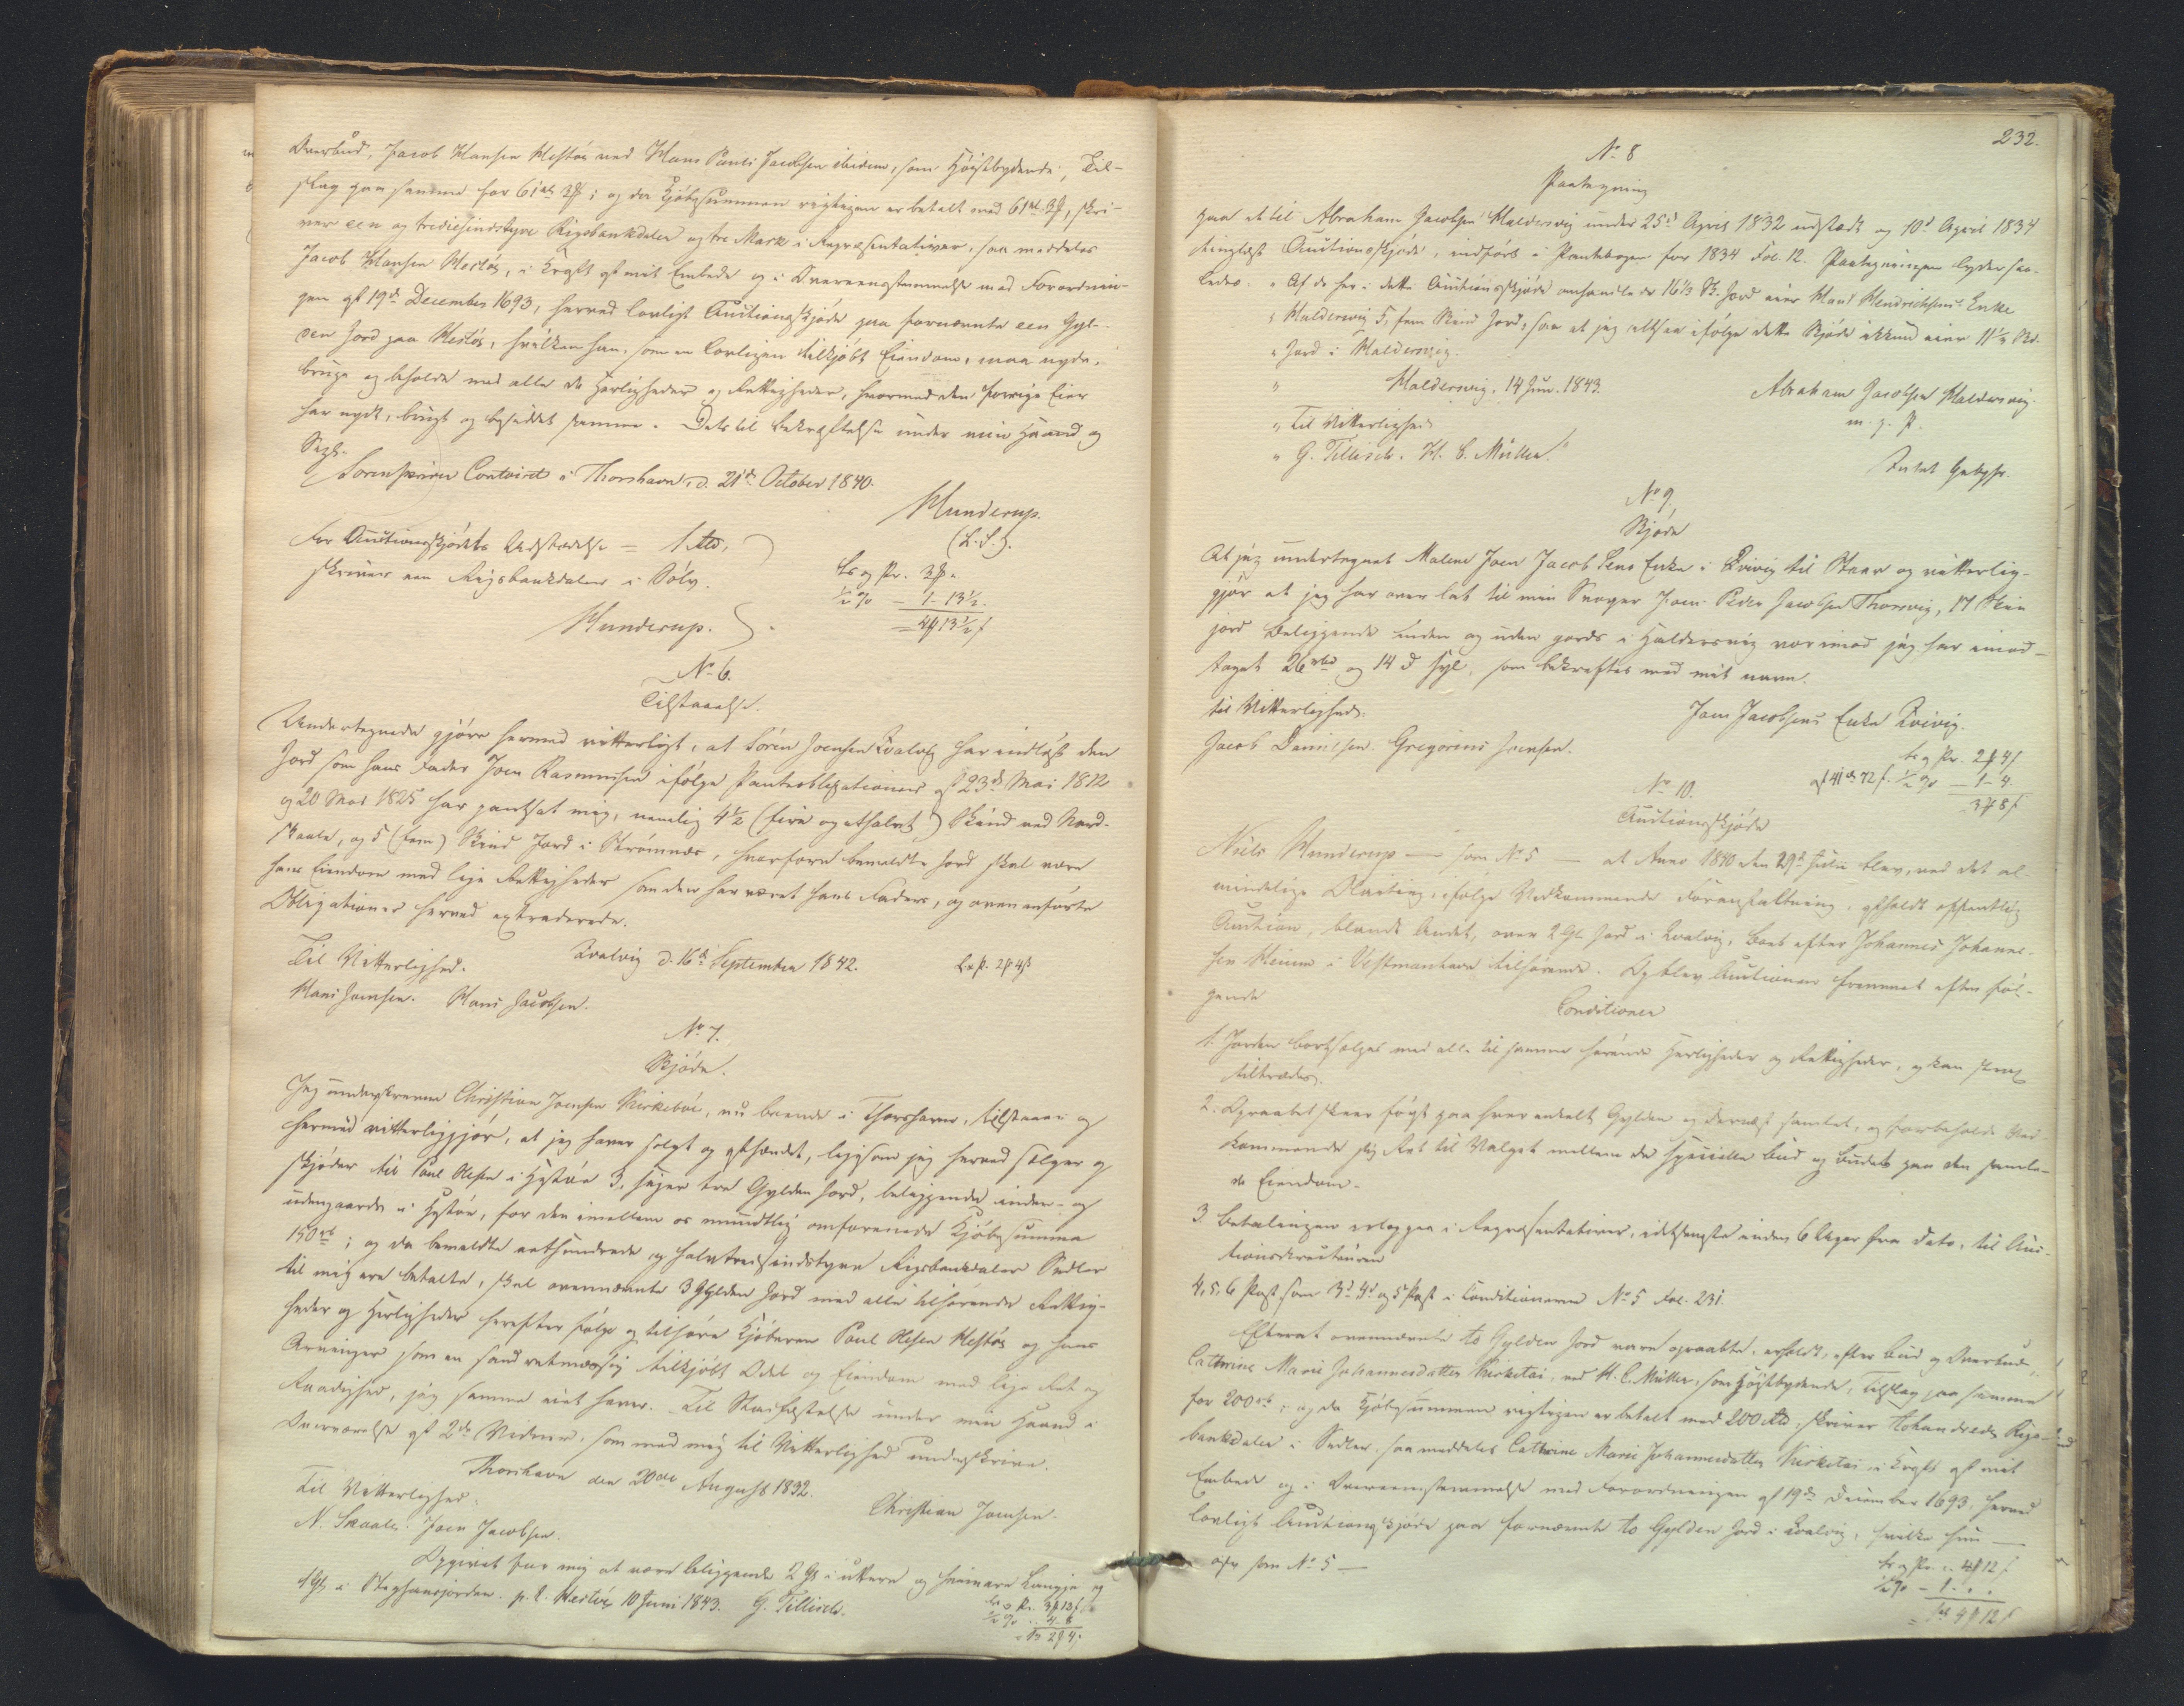 Overbud, Jacob Hansen Hestöe ved Hans Pauli Jacobsen ibidem, som Højstbydende, Til-
slag paa samme for 61 rbd 3 ; og da Kjöbesummen rigtigen er betalt med 61 rbd 3 , skri-
ver een og tredsindstyve Rigsbankdaler og tre Mark i Repræsentativer, saa meddeles
Jacob Hansen Hestöe, i Kraft af mit Embede og i Overeenstemmelse med Forordnin-
gen af 19de December 1693, herved lovligt Auctionsskjöde paa fornævnte een Gyl-
den Jord paa Hestöe, hvilken han, som en lovligen tilkjöbt Eiendom, maa nyde,
bruge og beholde med alle de Herligheder og Rettigheder, hvormed den forrige Eier
har nydt, brugt og besiddet samme. Dets til Bekræftelse under min Haand og
Segl.
Sorenskriver Contoiret i Thorshavn, d. 21de October 1840.
Hunderup.
(L.S.).
For Auctionsskjödets Udstædelse = 1 rbd,
skriver een Rigsbankdaler i Sölv.
Hunderup.
½ % – 1 – 13½.
No 6.
Tilstaaelse.
Undertegnede gjöre hermed vitterligt, at Sören Joensen Qvalvig har indlöst den
Jord som hans Fader Joen Rasmussen ifölge Panteobligationer af 23de Mai 1812
og 20 Mai 1825 har pantsat mig, nemlig 4½ (fire og ethalvt) Skind ved Nord-
skaale, og 5 (fem) Skind Jord i Strömnæs, hvorfore bemeldte Jord skal være
hans Eiendom med lige Rettigheder som den har været hans Faders, og ovenanförte
Obligationer herved extraderede.
Qvalvig d. 16de September 1842.
Til Vitterlighed.
Hans Joensen. Hans Jacobsen.
No 7.
Skjöde.
Jeg underskrevne Christian Joensen Kirkeböe, nu boende i Thorshavn, tilstaaer og
hermed vitterliggjör, at jeg haver solgt og afhændet, ligesom jeg herved sælger og
skjöder til Poul Olesen i Hestöe 3, siger tre Gylden Jord, beliggende inden- og
udengaards i Hestöe, for den imellem os mundtlig omforenede Kjöbesumma
150 rb; og da bemeldte eethundrede og halvtredsindstyve Rigsbankdaler Sedler
til mig ere betalte, skal ovennævnte 3 Gylden Jord med alle tilhörende Rettig-
heder og Herligheder herefter fölge og tilhöre Kjöberen Poul Olesen Hestöe og hans
Arvinger som en sand retmæssig tilkjöbt Odel og Eiendom med lige Ret og
Raadighed, jeg samme eiet haver. Til Stadfæstelse under min Haand i
Overværelse af 2de Vidner, som med mig til Vitterlighed underskrive.
Thorshavn den 20de August 1832.
Christian Joensen.
Til Vitterlighed:
N. Skaale. Joen Jacobsen.
Opgivet for mig at være beliggende 2 Gl i uttere og heimare Langja og
1 Gl i . p. t. Hestöe 10 Juni 1843. G. Tillisch.
232.
No 8
Paategning
paa et til Abraham Jacobsen Haldersvig under 25de April 1832 udstædt og 10de April 1834
tinglæst Auctionsskjöde, indfört i Pantebogen for 1834 Fol. 12. Paategningen lyder saa-
ledes: "Af de her i dette Auctionsskjöde omhandlede 16½ Sk. Jord eier Hans Hendrichsens Enke
" Haldersvig 5, fem Skind Jord, saa at jeg altsaa ifölge dette Skjöde ikkun eier 11½ Sk.
" Jord i Haldersvig.
" Haldersvig, 14 Jun. 1843.
Abraham Jacobsen Haldersvig
m. f. P.
" Til Vitterlighed:
" G. Tillisch. H. C. Müller."
Intet Gebyhr.
No 9.
Skjöde
At jeg undertegnet Malene Joen Jacob Sens Enke i Qvivig til Staar og vitterlig-
gjör at jeg har over lat til min Svoger Joen Peder Jacobsen Thorsvig, 17 Skin
jord beliggende inden og uden gards i Haldersvig vor imod jeg har imod-
taget 26 rbd og 14 Syl. som bekraftes med mit navn.
til Vitterlighed:
Joen Jacobsens Enke Qvivig.
Jacob Danielsen. Gregorius Joensen.
No 10.
Auctionsskjöde
Niels Hunderup — som No 5 — at Anno 1840 den 29de Julii blev, ved det al-
mindelige Olaiting, ifölge Vedkommendes Foranstaltning, afholdt offentlig
Auction, blandt Andet, over 2 Gl. Jord i Qvalvig, Boet efter Johannes Johanne-
sen Heime i Vestmanhavn tilhörende. Og blev Auctionen fremmet efter föl-
gende
Conditioner
1. Jorden bortsælges med alle til samme hörende Herligheder og Rettigheder, og kan strax
tiltrædes.
2. Opraabet skeer förgst paa hver enkelt Gylden og dernæst samlet, og forbeholde Ved-
kommende sig Ret til Valget mellem de specielle Bud og Budet paa den samle-
de Eiendom.
3. Betalingen erlægges i Repræsentativer, idetseneste inden 6 Uger fra Dato, til Auc-
tionsdirecteuren
4, 5, 6 Post som 3de 4de og 5 Post i Conditionerne No 5 Fol. 231.
Efterat ovennævnte to Gylden Jord vare opraabte, erholdt, efter Bud og Overbud,
Cathrine Marie Johannesdatter Kirketei, ved H. C. Müller, som Højstbydende, Tilslag paa samme
for 200 rb; og da Kjöbesummen rigtigen er betalt med 200 rbd, skriver tohundrede Rigs-
bankdaler i Sedler, saa meddeles Cathrine Marie Johannesdatter Kirketei, i Kraft af mit
Embede og i Overeenstemmelse med Forordningen af 19de December 1693, herved
lovligt Auctionsskjöde paa fornævnte to Gylden Jord i Qvalvig, hvilke hun —
som No 5 —